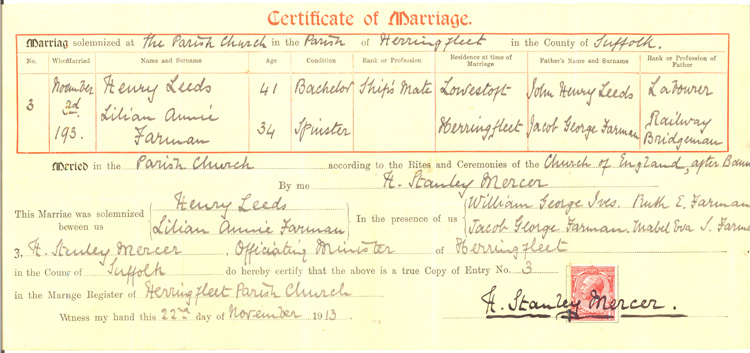 Certificate of Marriage.
Marriag solemnized at The Parish Church in the Parish of Herringfleet in the County of Suffolk.
No. When Married Name and Surname Age Condition Rank or Profession Residence at time of Marriage Father's Name and Surname Rank or Profession of Father
3 November 2nd 193. Henry Leeds 41 Bachelor Ship's Mate Lowestoft John Henry Leeds Labourer
Lilian Annie Farman 34 Spinster Herringfleet Jacob George Farman Railway Bridgeman
Meried in the Parish Church according to the Rites and Ceremonies of the Church of England, after Bann
By me H. Stanley Mercer
This Marriae was solemnized beween us Henry Leeds Lilian Annie Farman In the presence of us William George Ives. Ruth E. Farman Jacob George Farman. Mabel Eva S. Farma
3, H. Stanley Mercer, Officiating Minister of Herringfleet
in the Coun of Suffolk do hereby certify that the above is a true Copy of Entry No. 3
in the Marage Register of Herringfleet Parish Church
Witness my hand this 22nd day of November 1913. H. Stanley Mercer.